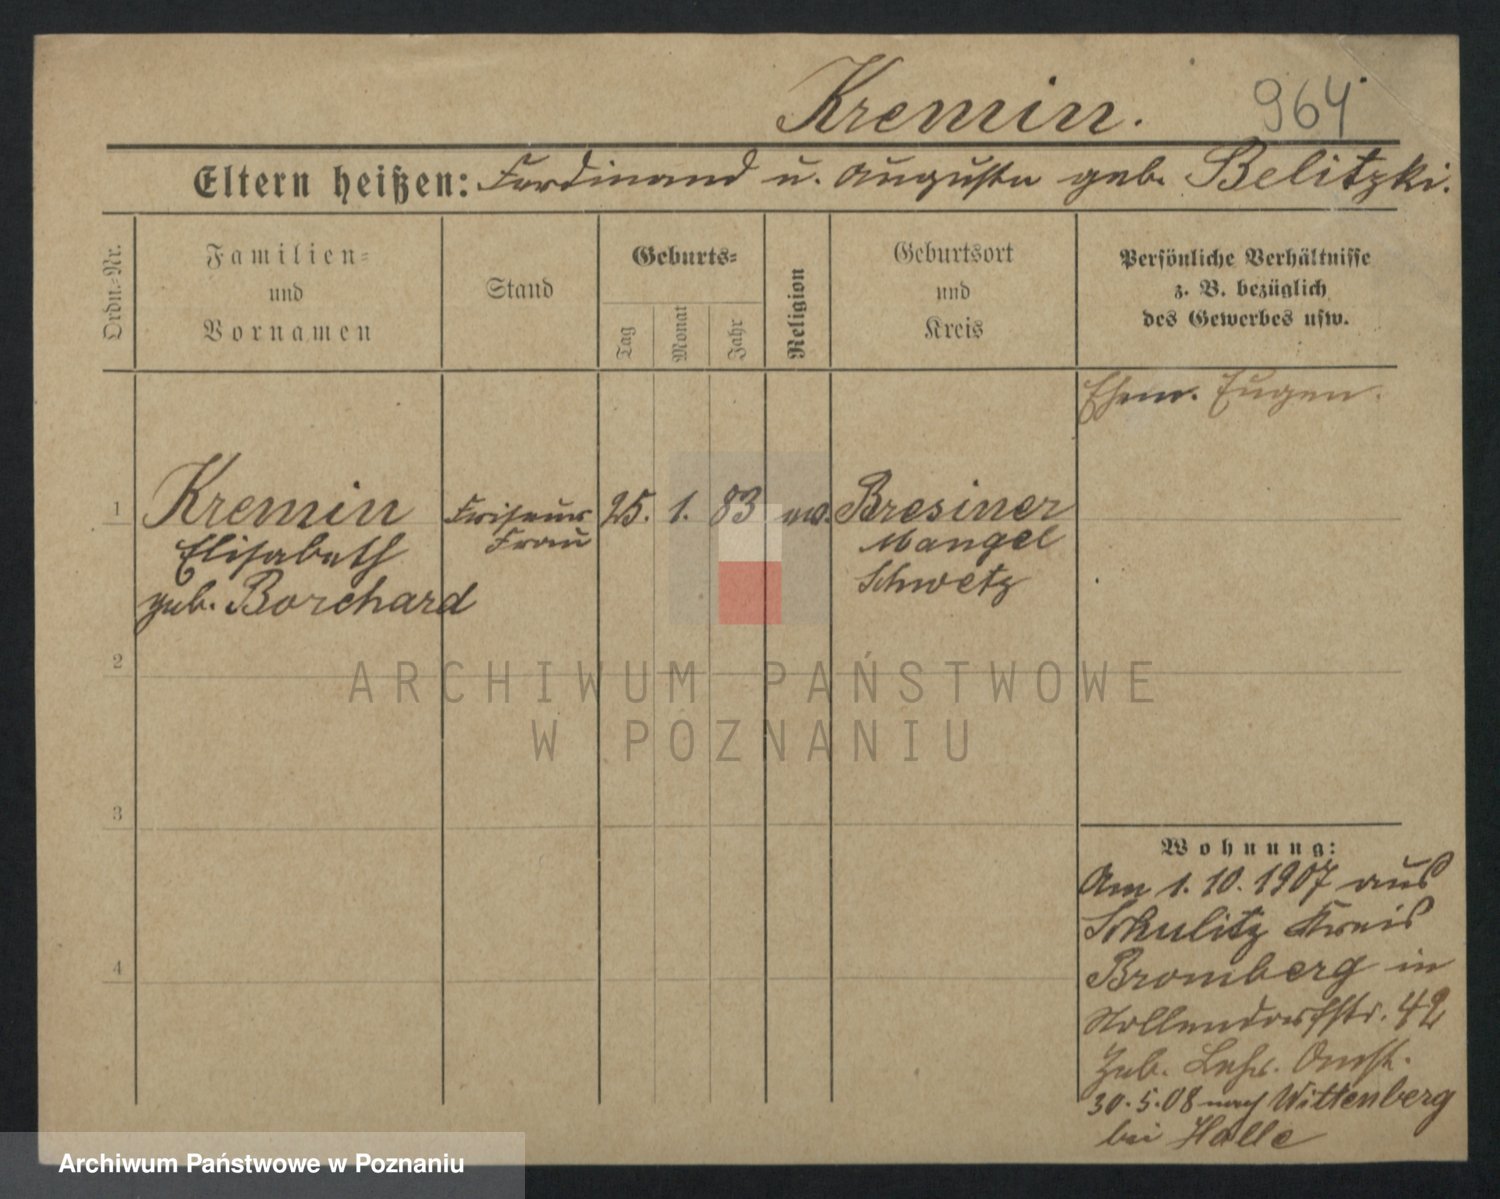 Kremin. 964
Eltern heißen: Ferdinand u. Auguste geb. Belitzki.
Ordn.-Nr.
Familien-
und
Vornamen
Stand
Geburts-
Tag
Monat
Jahr
Religion
Geburtsort
und
Kreis
Persönliche Verhältnisse
z. B. bezüglich
des Gewerbes usw.
Ehem. Eugen.
1 Kremin Friseur 25. 1. 83 ev. Bresiner
Elisabeth Frau Mangel
geb. Borchard Schwetz
2
ARCHIWUM PAŃSTWOWE
W POZNANIU
3
Wohnung:
Am 1.10.1907 aus
Schulitz Kreis
4
Bromberg in
Nollendorfstr. 42
30.5.08 nach Wittenberg
bei Halle
Archiwum Państwowe w Poznaniu